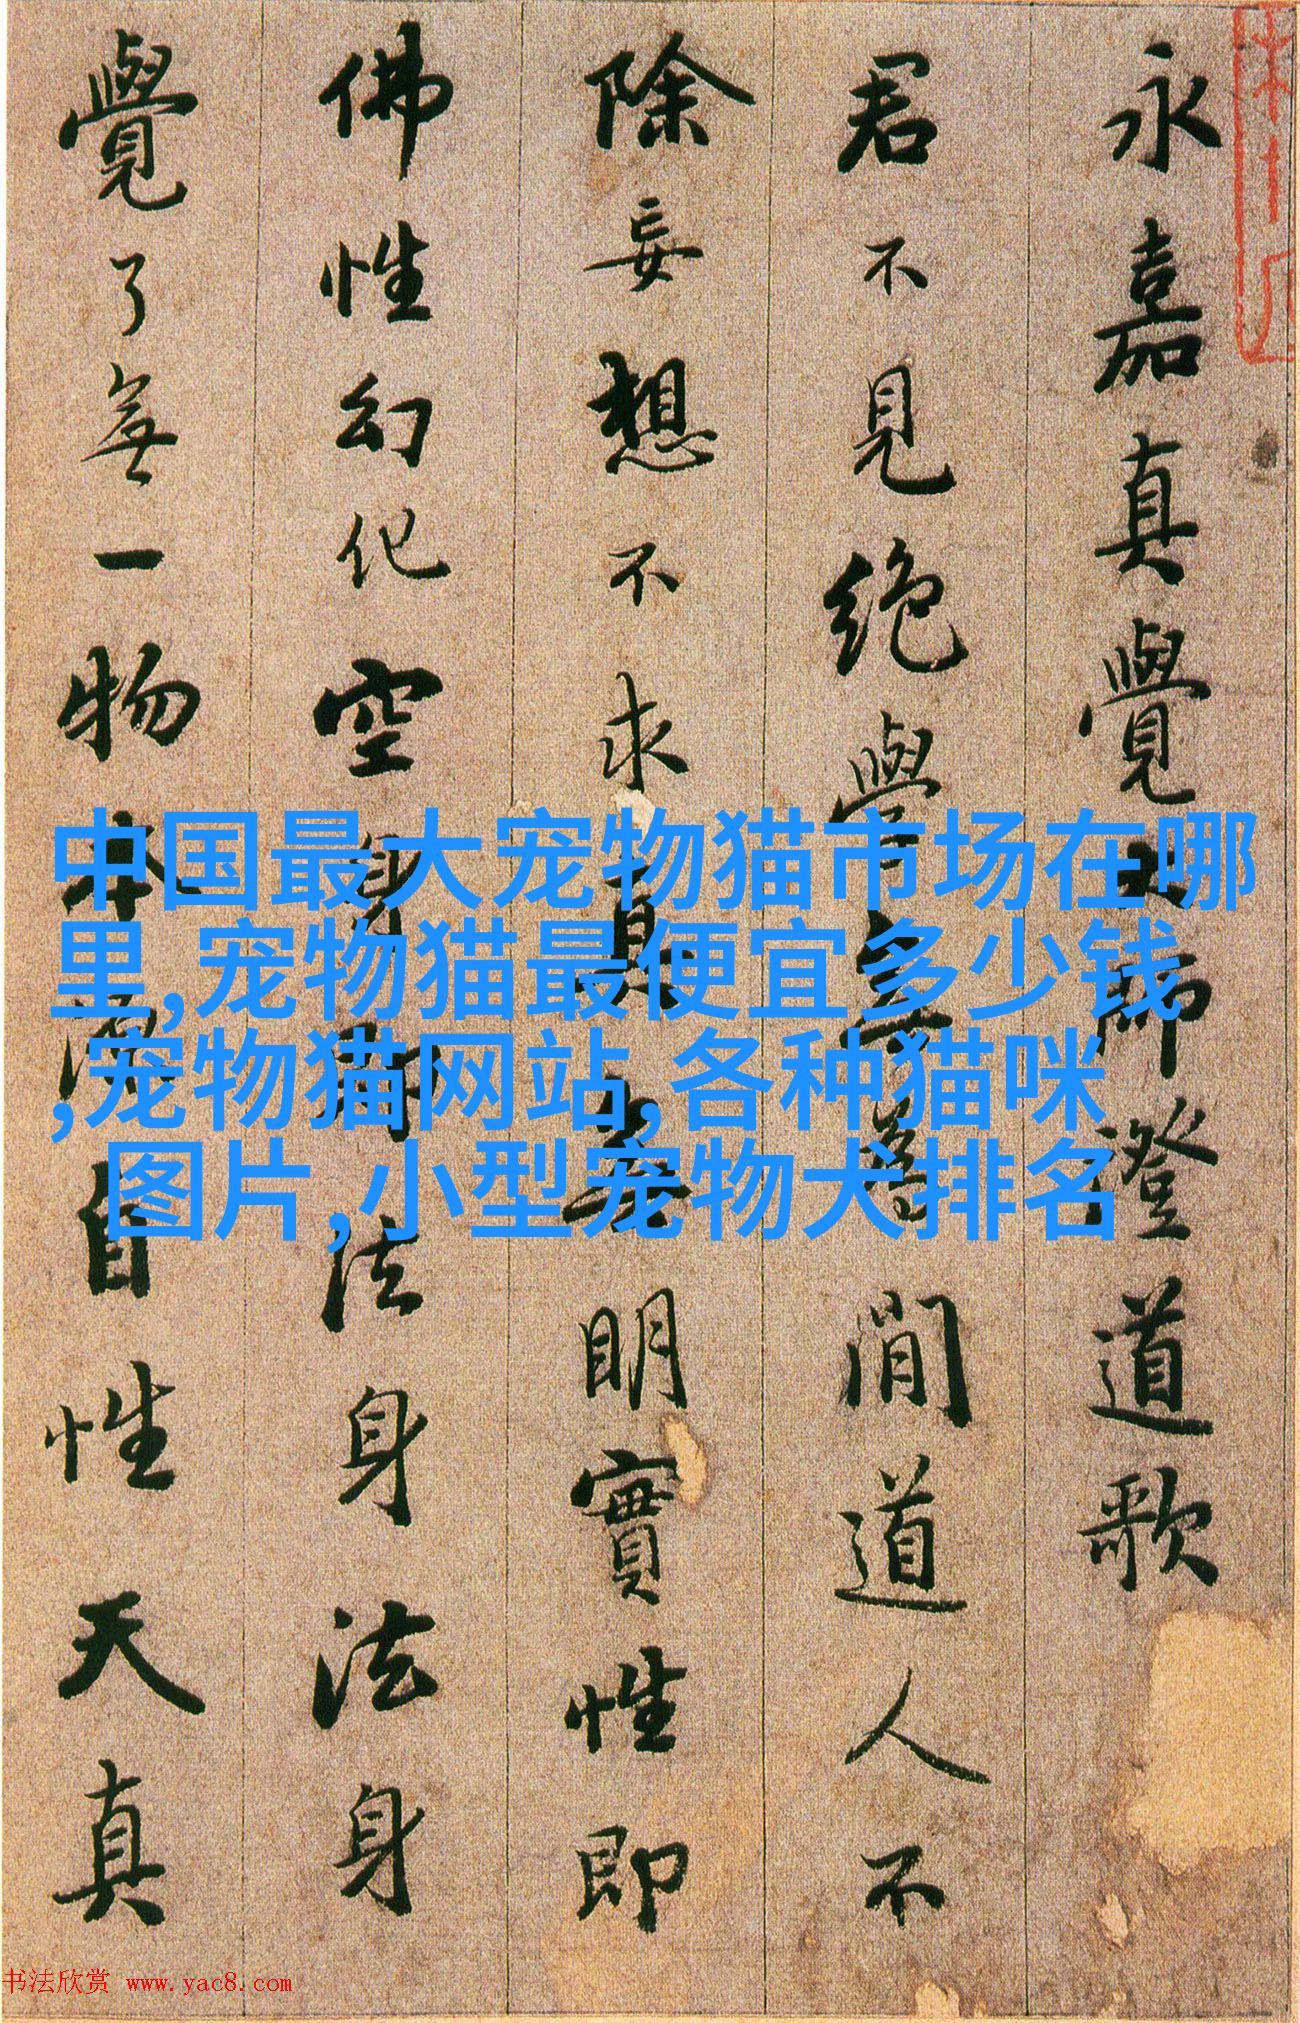 永嘉真覺大師證道歌
君不見絕學無為閒道人不
除妄想不求真無明實性即
佛性幻化空身即法身法身
覺了無一物本源自性天真
中国最大宠物猫市场在哪
里,宠物猫最便宜多少钱
,宠物猫网站,各种猫咪
图片,小型宠物犬排名
书法欣赏 www.yac8.com